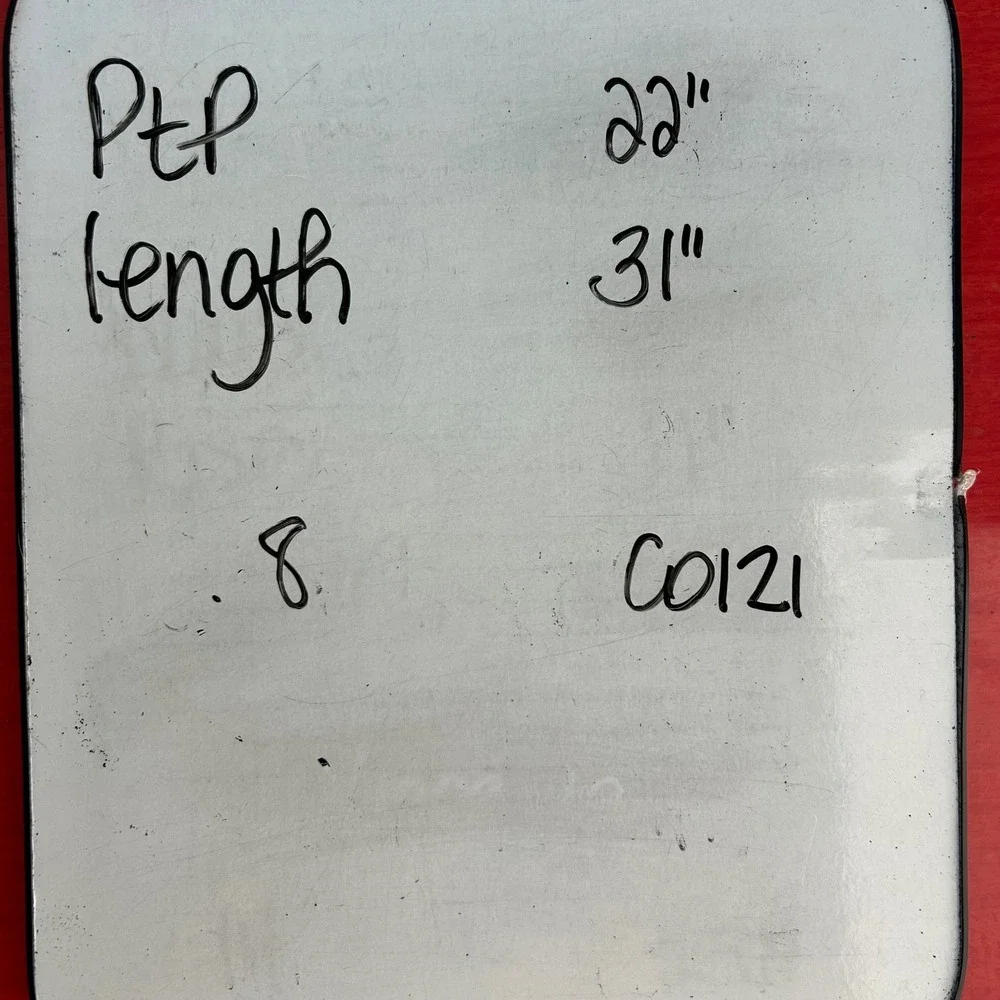 PtP 22"
length 31"
.8 CO121